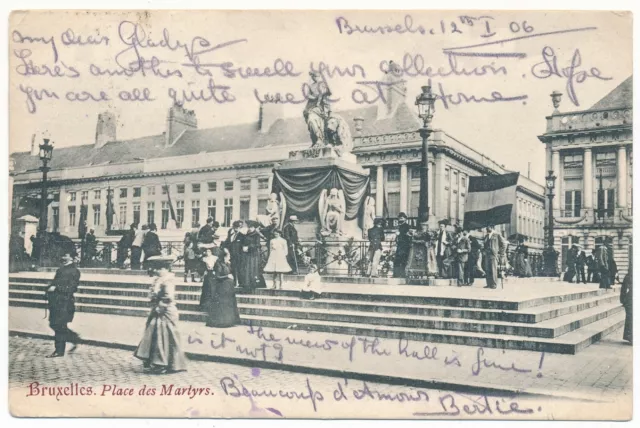 Brussels. 12th I 06
my dear Gladys
Here's another to swell your collection. Hope
you are all quite well at home.
The view of the hall is fine!
is it not?
Bruxelles. Place des Martyrs.
Beaucoup d'Amour
Bertie.